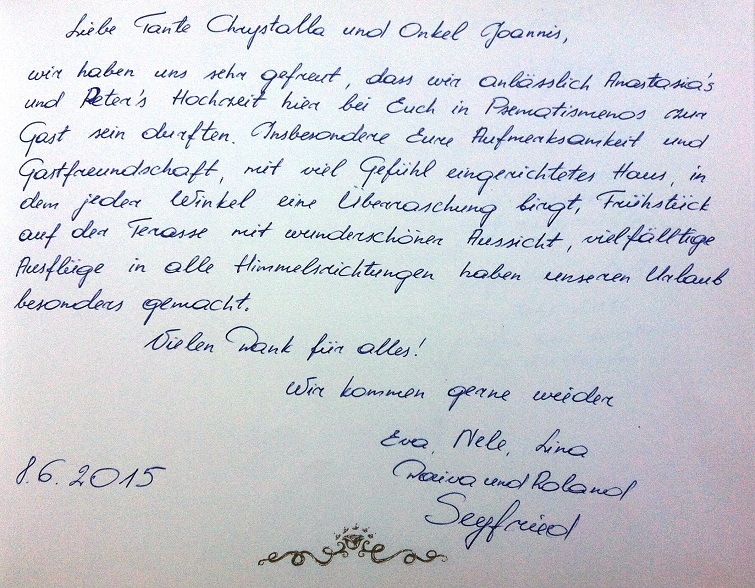 Liebe Tante Chrystalla und Onkel Joannis,
wir haben uns sehr gefreut, dass wir anlässlich Anastasia's
und Peter's Hochzeit hier bei Euch in Psematismenos zur
Gast sein durften. Insbesondere Eure Aufmerksamkeit und
Gastfreundschaft, mit viel Gefühl eingerichtetes Haus, in
dem jeder Winkel eine Überraschung birgt, Frühstück
auf der Terasse mit wunderschöner Aussicht, vielfälltige
Ausflüge in alle Himmelsrichtungen haben unseren Urlaub
besonders gemacht.
Vielen Dank für alles!
Wir kommen gerne wieder
Eva, Nele, Lina
Daiva und Roland
8.6.2015
Seyfried